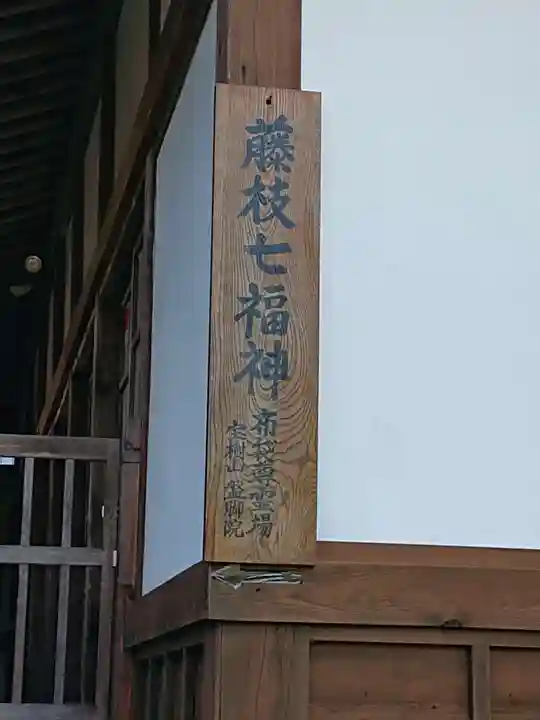 藤枝七福神
布袋尊霊場
宝樹山 盤脚院